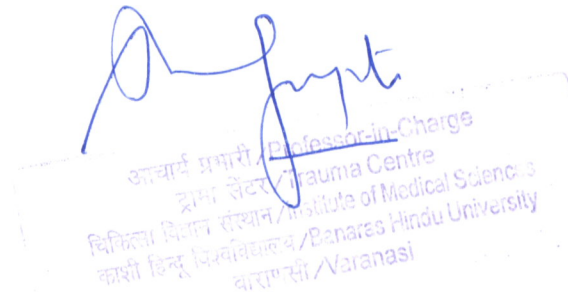 आचार्य प्रभारी / Professor-in-Charge
ट्रामा सेंटर / Trauma Centre
चिकित्सा विज्ञान संस्थान / Institute of Medical Sciences
काशी हिन्दू विश्वविद्यालय / Banaras Hindu University
वाराणसी / Varanasi